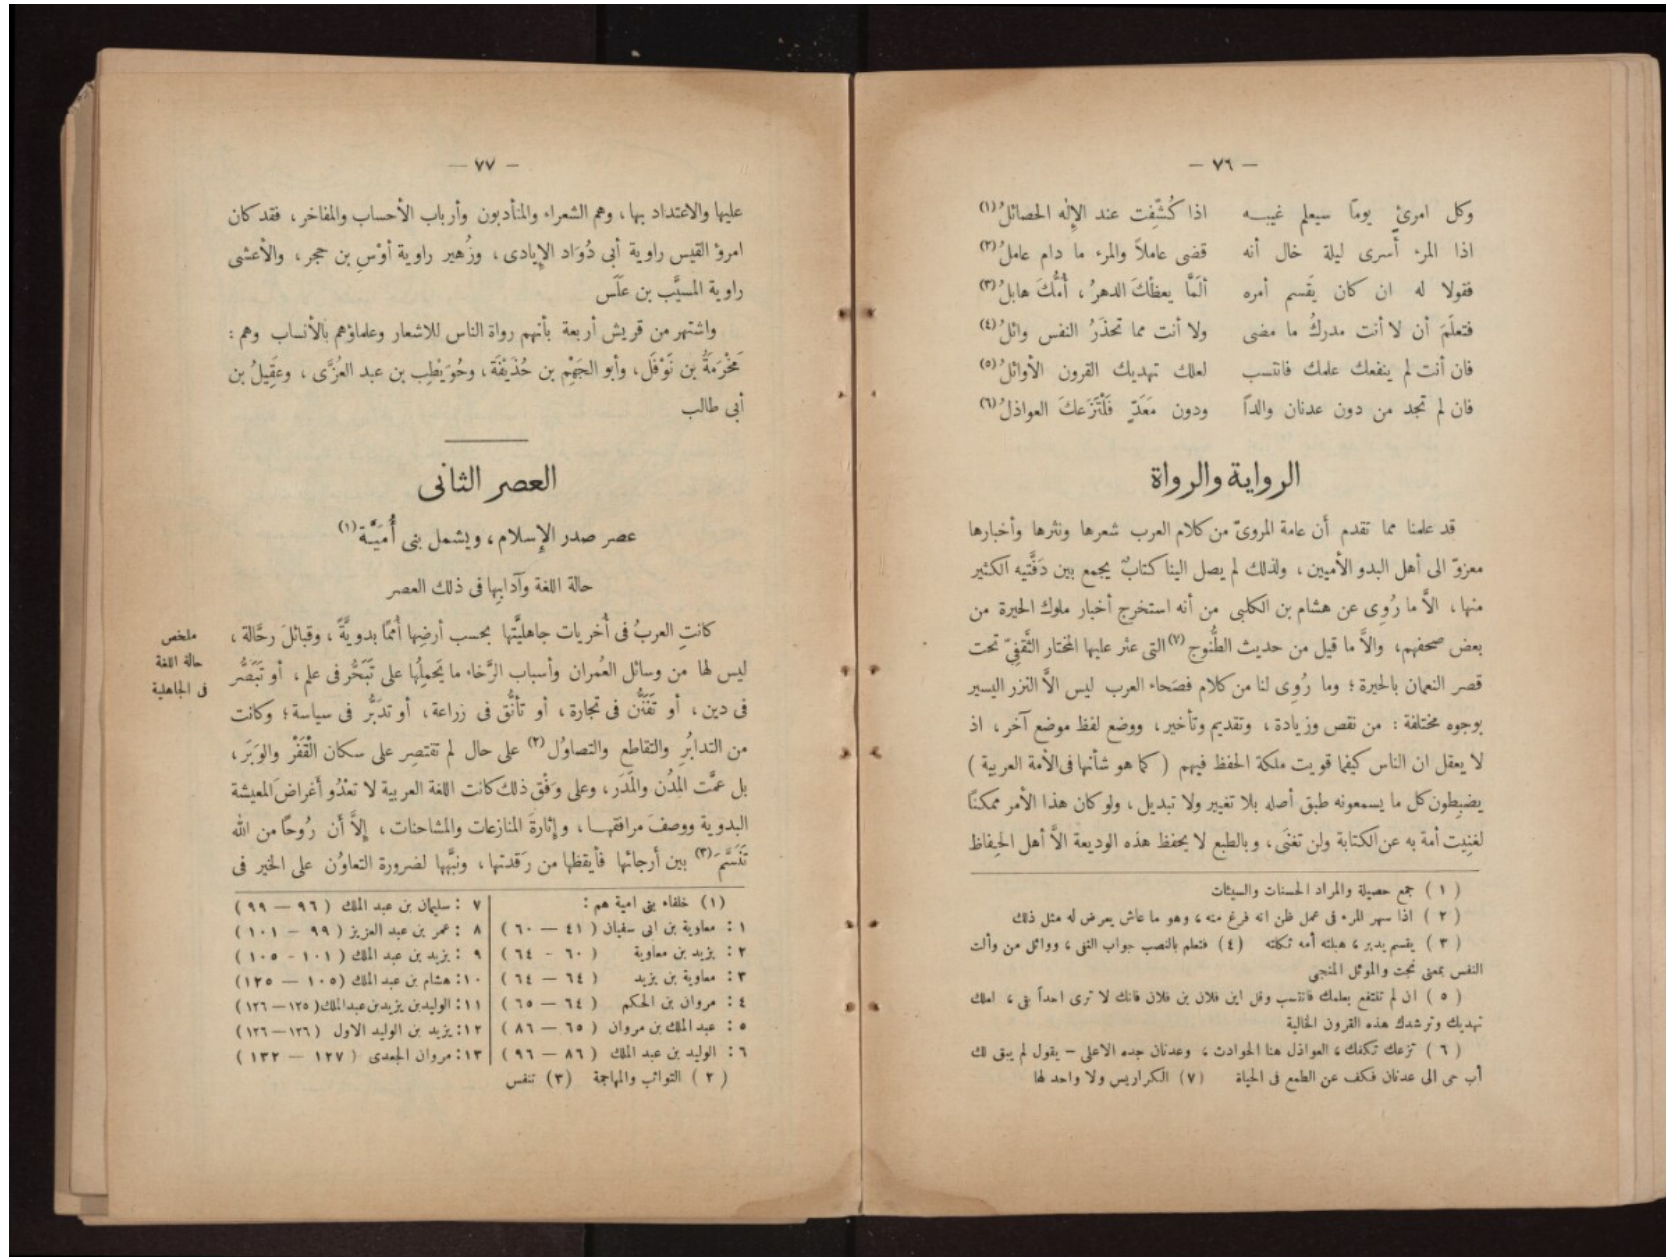 — ٧٦ —
وكل امرئٍ يومًا سيعلم غيبـه اذا كُشِّفت عند الإله الحصائلُ (١)
اذا المرء أسرى ليلة خال أنه قضى عاملاً والمرء ما دام عاملُ (٢)
فقولا له ان كان يَقسم أمره ألَمَّا يعظْكَ الدهرُ، أمُّكَ هابلُ (٣)
فتعلَمَ أن لا أنت مدركُ ما مضى ولا أنت مما تحذَرُ النفس وائلُ (٤)
فان أنت لم ينفعك علمك فانتسب لعلك تهديك القرون الأوائلُ (٥)
فان لم تجد من دون عدنان والداً ودون مَعَدٍّ فَلْتَزَعكَ العواذلُ (٦)
الرواية والرواة
قد علمنا مما تقدم أن عامة المروىّ من كلام العرب شعرها ونثرها وأخبارها
معزوّ الى أهل البدو الأميين، ولذلك لم يصل الينا كتابٌ يجمع بين دَفَّتيه الكثير
منها، الاَّ ما رُوِى عن هشام بن الكلبى من أنه استخرج أخبار ملوك الحيرة من
بعض صحفهم، والاَّ ما قيل من حديث الطُّنوج (٧) التى عثر عليها المختار الثَّقفِىّ تحت
قصر النعمان بالحيرة؛ وما رُوِى لنا من كلام فصَحاء العرب ليس الاَّ النزر اليسير
بوجوه مختلفة : من نقص وزيادة، وتقديم وتأخير، ووضع لفظ موضع آخر، اذ
لا يعقل ان الناس كيفما قويت ملكة الحفظ فيهم ( كما هو شأنها فى الأمة العربية )
يضبِطون كل ما يسمعونه طبق أصله بلا تغيير ولا تبديل، ولو كان هذا الأمر ممكنًا
لغنِيت أمة به عن الكتابة ولن تغنَى، وبالطبع لا يحفظ هذه الوديعة الاَّ أهل الحِفاظ
( ١ ) جمع حصيلة والمراد الحسنات والسيئات
( ٢ ) اذا سهر المرء فى عمل ظن انه فرغ منه، وهو ما عاش يعرض له مثل ذلك
( ٣ ) يقسم يدبر، هبلته أمه ثكلته (٤) فتعلم بالنصب جواب النفى، ووائل من وألت
النفس بمعنى نجت والموئل المنجى
( ٥ ) ان لم تنتفع بعلمك فانتسب وقل اين فلان بن فلان فانك لا ترى احداً بقى، لعلك
تهديك وترشدك هذه القرون الخالية
( ٦ ) تزعك تكفك، العواذل هنا الحوادث، وعدنان جده الاعلى – يقول لم يبق لك
أب حى الى عدنان فكف عن الطمع فى الحياة (٧) الكراريس ولا واحد لها
— ٧٧ —
عليها والاعتداد بها، وهم الشعراء والمتأدبون وأرباب الأحساب والمفاخر، فقد كان
امرؤ القيس راوية أبى دُوَاد الإيادى، وزُهير راوية أوْسِ بن حجر، والأعشى
راوية المسيَّب بن عَلَس
واشتهر من قريش أربعة بأنهم رواة الناس للاشعار وعلماؤهم بالأنساب وهم :
مَخْرَمَةُ بن نَوْفَل، وأبو الجَهْمِ بن حُذَيْفَة، وحُوَيْطِب بن عبد العُزَّى، وعَقِيلُ بن
أبى طالب
العصر الثانى
عصر صدر الإسلام، ويشمل بنى أُمَيَّة (١)
حالة اللغة وآدابِها فى ذلك العصر
كانتِ العربُ فى أُخريات جاهليَّتها بحسب أرضِها أُممًا بدويَّةً، وقبائلَ رحَّالة،
ملخص
حالة اللغة
فى الجاهلية
ليس لها من وسائل العُمران وأسباب الرَّخاء ما يَحمِلُها على تَبَحُّر فى علم، أو تَبَصُّر
فى دين، أو تَفَنُّن فى تجارة، أو تأنُّق فى زراعة، أو تدَبُّر فى سياسة؛ وكانت
من التدابُرِ والتقاطع والتصاوُل (٢) على حال لم تقتصِر على سكان الْقَفْر والوَبَر،
بل عمَّت المُدُن والمَدَر، وعلى وَفْق ذلك كانت اللغة العربية لا تعْدُو أغراضَ المعيشة
البدوية ووصفَ مرافقهـا، وإثارةَ المنازعات والمشاحنات، إلاَّ أن رُوحًا من الله
تَنَسَّمَ (٣) بين أرجائها فأيقظها من رَقدتها، ونبَّهها لضرورة التعاوُن على الخير فى
(١) خلفاء بنى امية هم :
١ : معاوية بن ابى سفيان ( ٤١ — ٦٠ )
٢ : يزيد بن معاوية ( ٦٠ - ٦٤ )
٣ : معاوية بن يزيد ( ٦٤ — ٦٤ )
٤ : مروان بن الحكم ( ٦٤ — ٦٥ )
٥ : عبد الملك بن مروان ( ٦٥ — ٨٦ )
٦ : الوليد بن عبد الملك ( ٨٦ — ٩٦ )
٧ : سليمان بن عبد الملك ( ٩٦ — ٩٩ )
٨ : عمر بن عبد العزيز ( ٩٩ - ١٠١ )
٩ : يزيد بن عبد الملك ( ١٠١ - ١٠٥ )
١٠ : هشام بن عبد الملك ( ١٠٥ — ١٢٥ )
١١ : الوليد بن يزيد بن عبد الملك ( ١٢٥ — ١٢٦ )
١٢ : يزيد بن الوليد الاول ( ١٢٦ — ١٢٦ )
١٣ : مروان الجعدى ( ١٢٧ — ١٣٢ )
( ٢ ) التواثب والمهاجمة (٣) تنفس